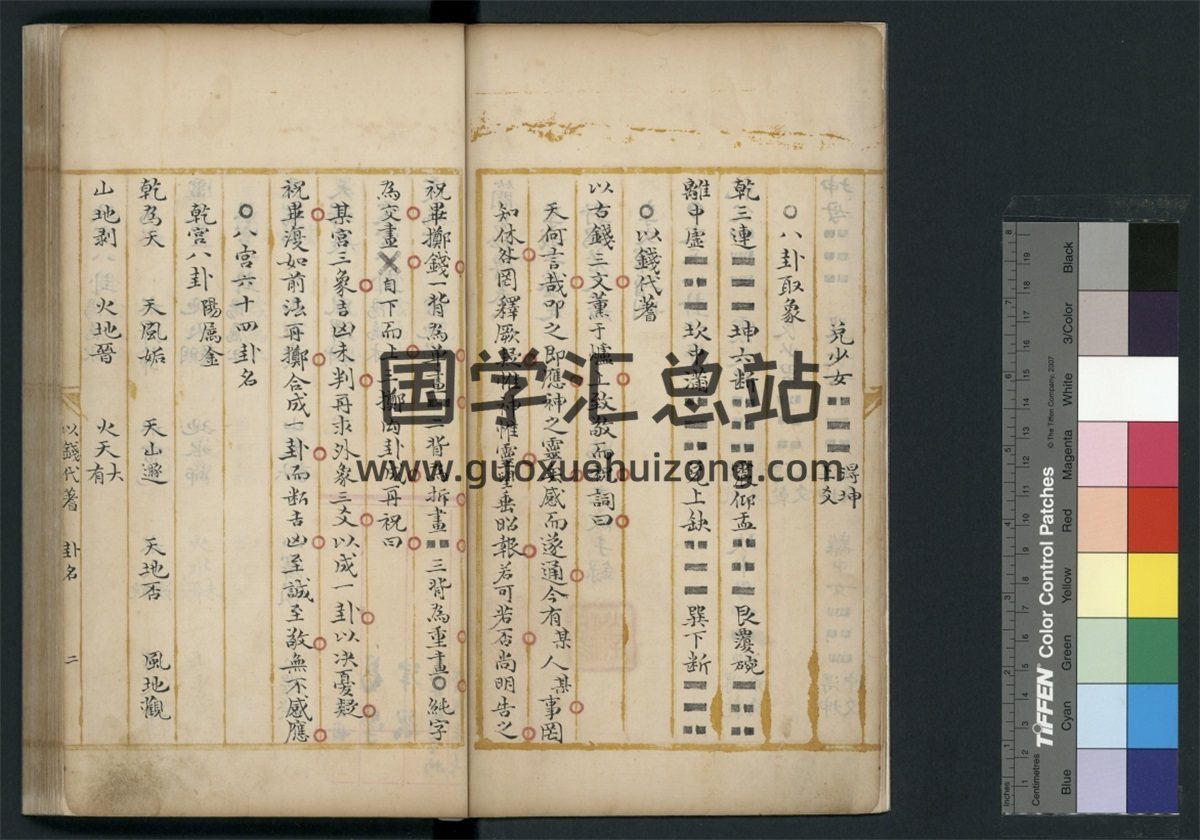 兌少女☱得坤上爻
○八卦取象
乾三連☰ 坤六斷☷ 震仰盂☳ 艮覆碗☶
離中虛☲ 坎中滿☵ 兌上缺☱ 巽下斷☴
○以錢代蓍
以古錢三文薰于爐上致敬而祝詞曰
天何言哉叩之即應神之靈矣感而遂通今有某人某事罔
知休咎罔釋厥疑惟神惟靈垂昭報若可若否尚明告之
祝畢擲錢一背為單畫 二背為拆畫 三背為重畫○純字
為交畫×自下而上三擲內卦成再祝曰
某宮三象吉凶未判再求外象三爻以成一卦以決憂疑
祝畢復如前法再擲合成一卦而斷吉凶至誠至敬無不感應
○八宮六十四卦名
乾宮八卦陽屬金
乾為天 天風姤 天山遯 天地否 風地觀
山地剥 火地晉 火天大有
以錢代蓍 卦名 二
国学汇总站
www.guoxuehuizong.com
TIFFEN Color Control Patches
© The Tiffen Company, 2007
Blue Cyan Green Yellow Red Magenta White 3/Color Black
Inches 1 2 3 4 5 6 8
Centimetres 1 2 3 4 5 8 9 10 11 12 13 14 15 18 19